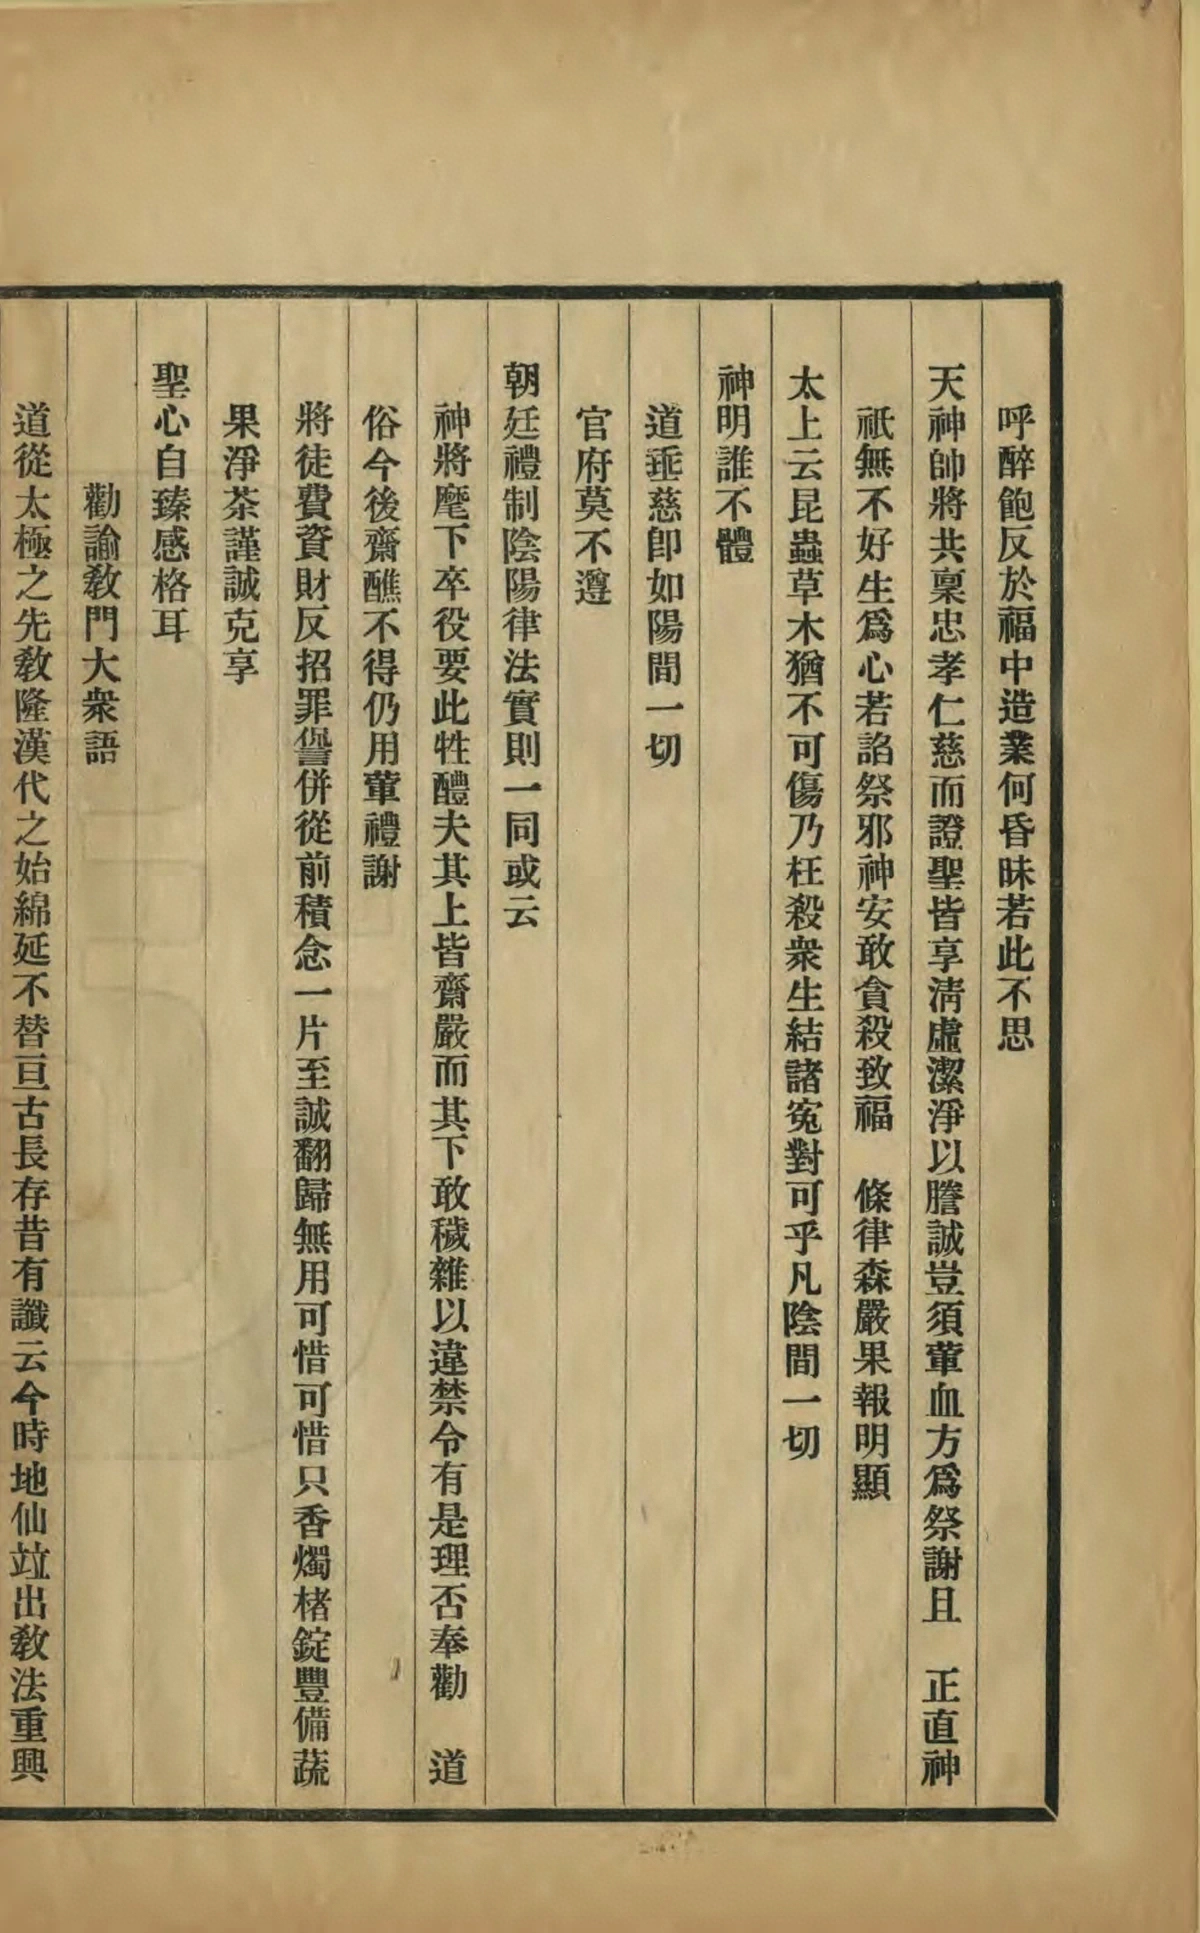 呼醉飽反於福中造業何昏昧若此不思
天神帥將共稟忠孝仁慈而證聖皆享淸虛潔淨以謄誠豈須葷血方爲祭謝且　正直神
祇無不好生爲心若諂祭邪神安敢貪殺致福　條律森嚴果報明顯
太上云昆蟲草木猶不可傷乃枉殺衆生結諸寃對可乎凡陰間一切
神明誰不體
道垂慈卽如陽間一切
官府莫不遵
朝廷禮制陰陽律法實則一同或云
神將麾下卒役要此牲醴夫其上皆齋嚴而其下敢穢雜以違禁令有是理否奉勸　道
俗今後齋醮不得仍用葷禮謝
將徒費資財反招罪諐併從前積念一片至誠翻歸無用可惜可惜只香燭楮錠豐備蔬
果淨茶謹誠克享
聖心自臻感格耳
勸諭敎門大衆語
道從太極之先敎隆漢代之始綿延不替亘古長存昔有讖云今時地仙竝出敎法重興